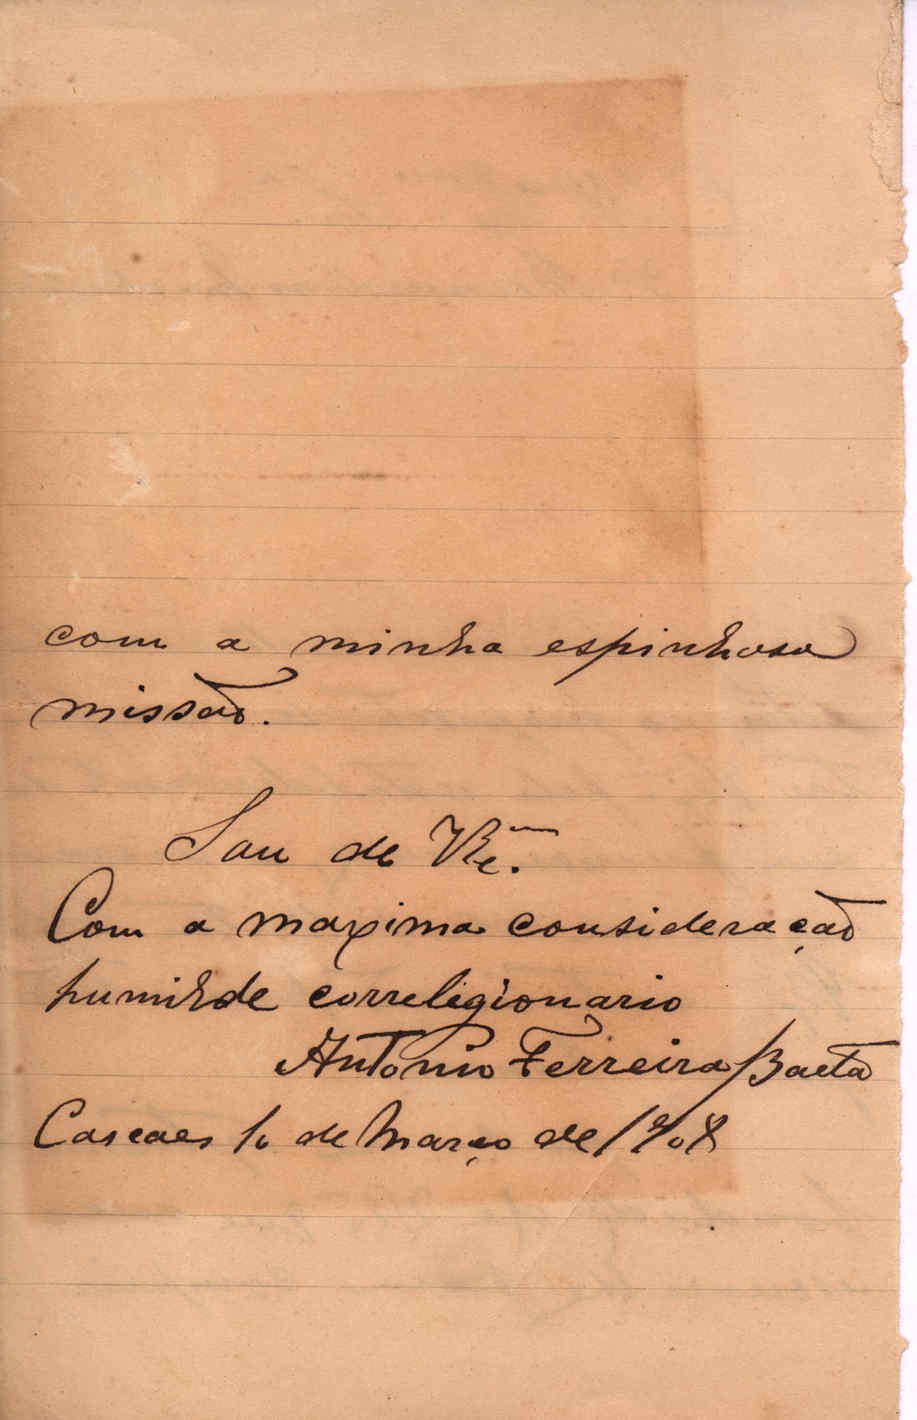 com a minha espinhosa
missão.
Sou de V.Ex.ª
Com a maxima consideração
humilde correligionario
Antonio Ferreira Baeta
Cascaes 10 de Março de 1908